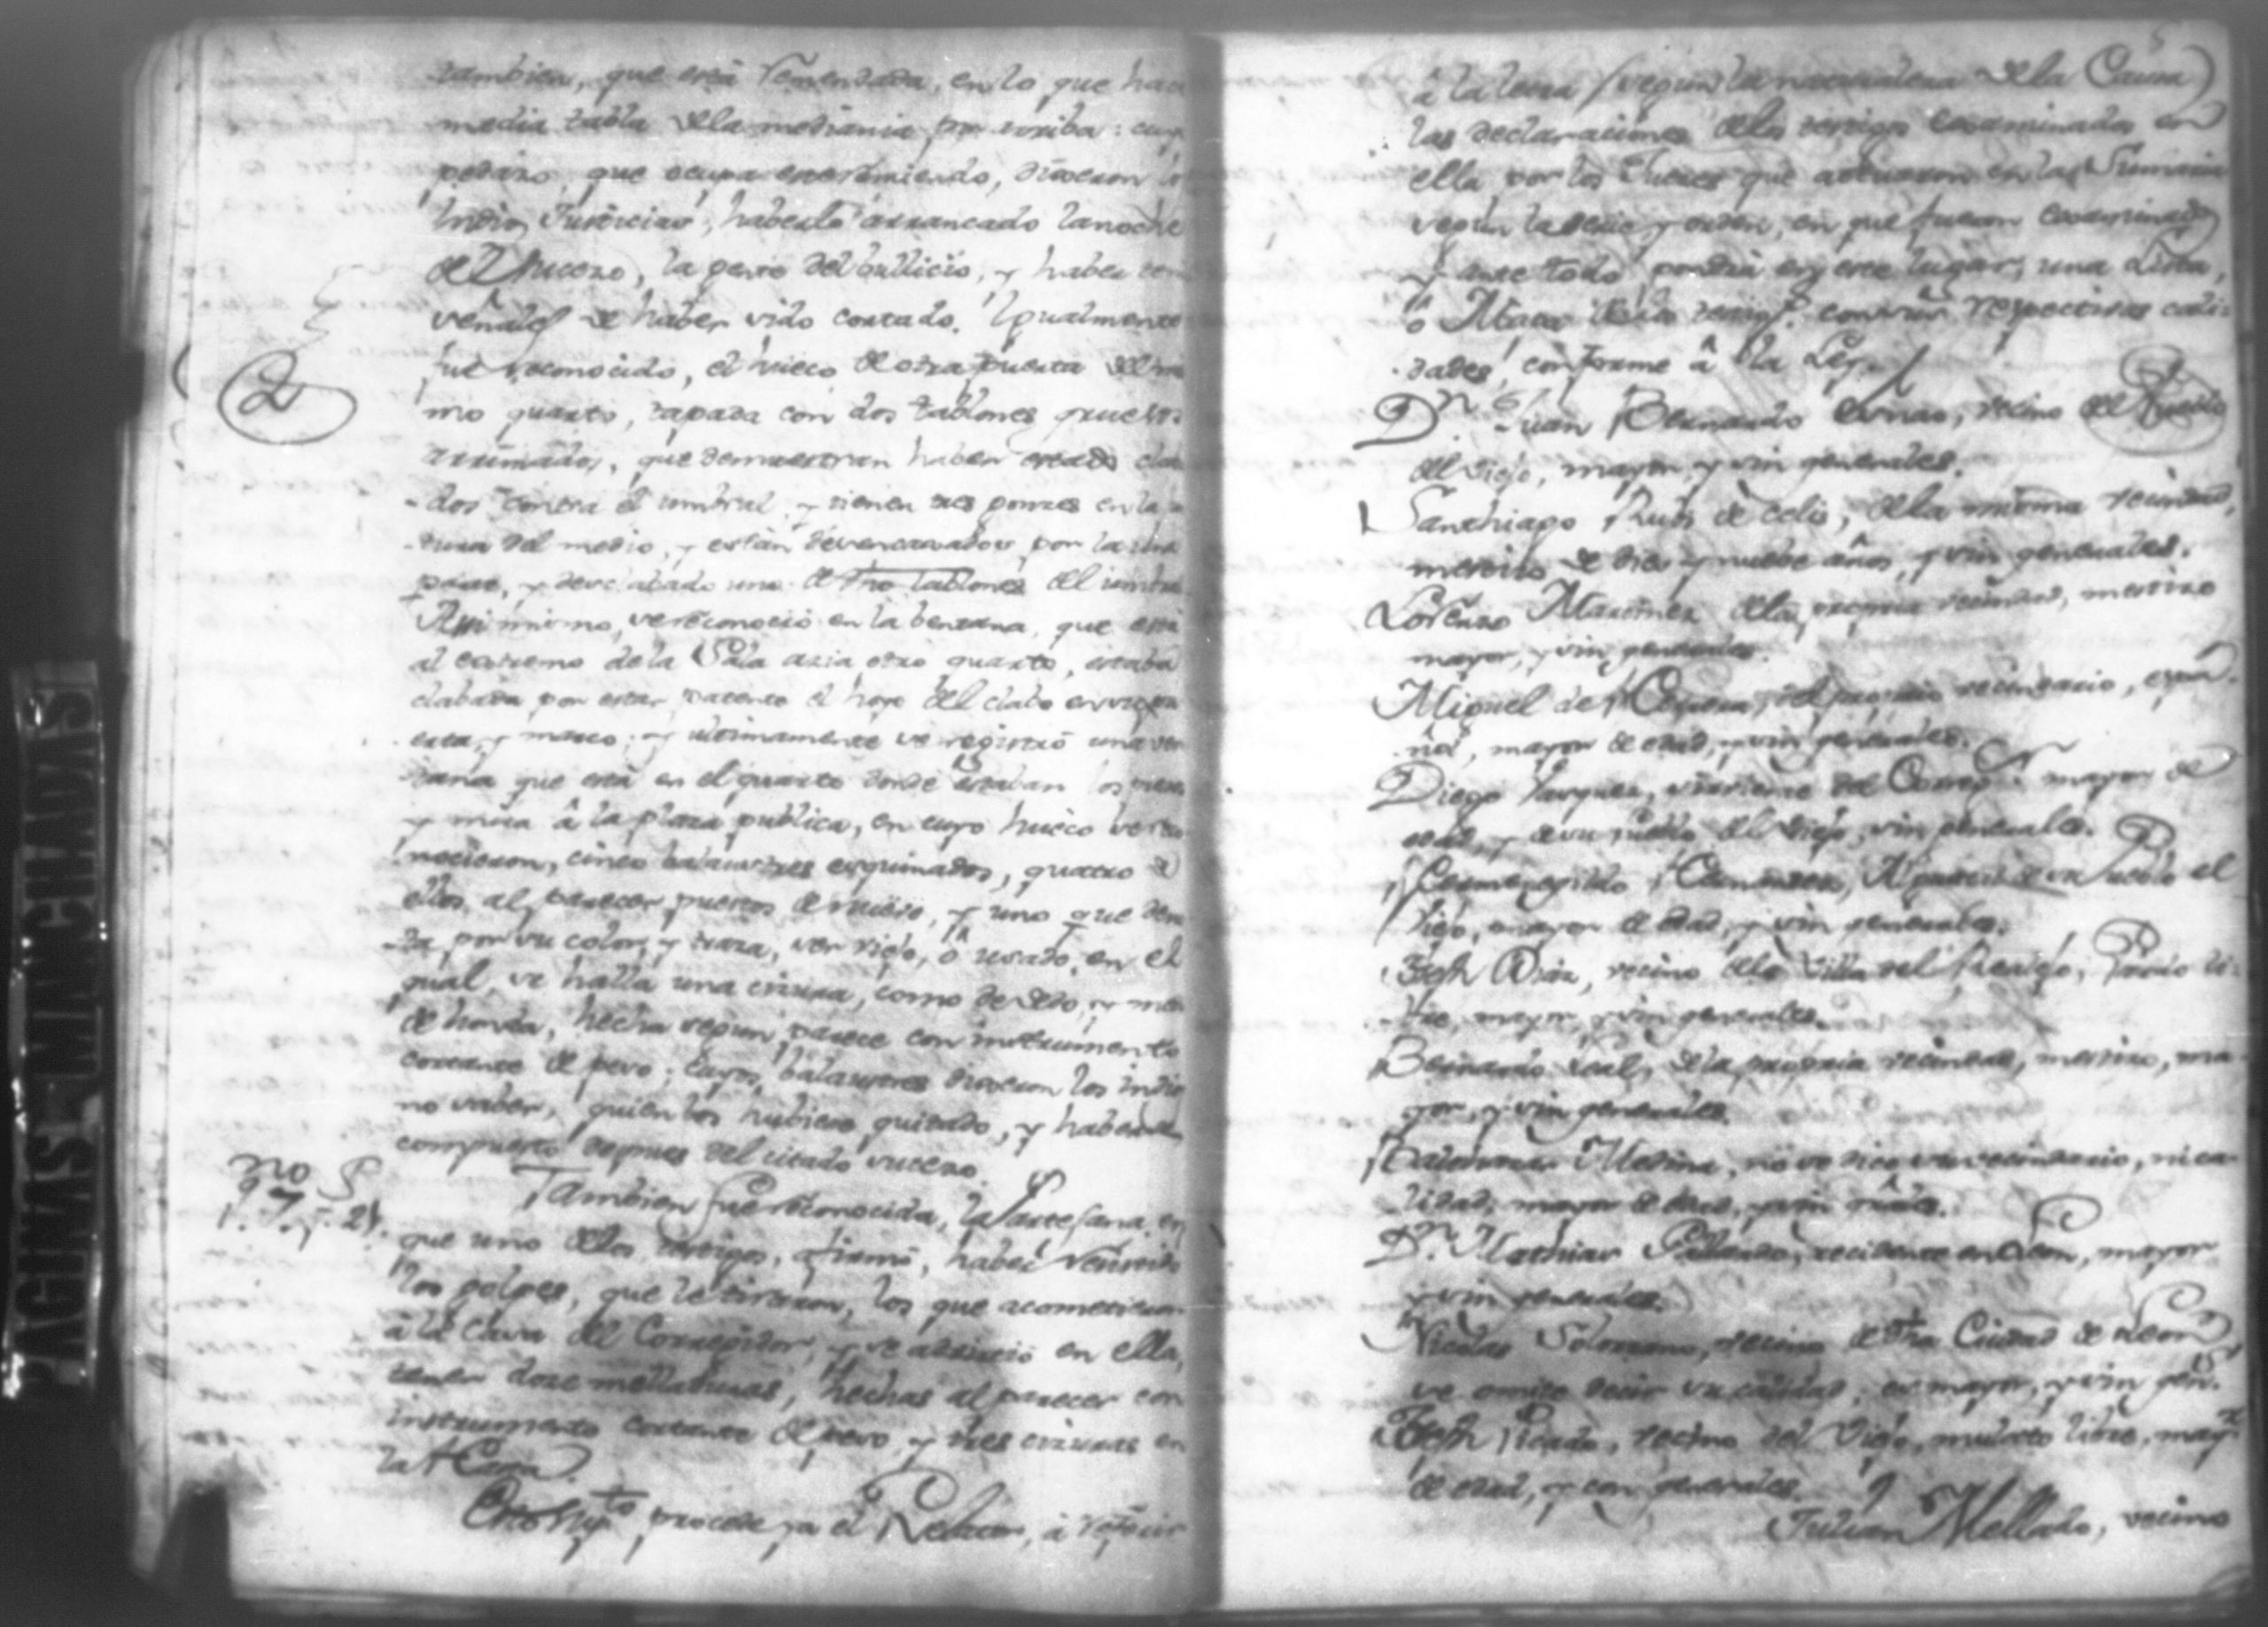 tambien, que está remendada, en lo que hace
media tabla dela mediania por arriba: cuyo
pedazo, que ocupa este remiendo, dixeron los
Indios Justicias, haberlo arrancado la noche
del suceso, la gente del bullicio, y haber
señales de haber sido cortado. Igualmente
fue reconocido, el hueco de otra puerta del mis
mo quarto, tapada con dos tablones gruesos
arrimados, que demuestran haber estado cla
-dos contra el umbral, y tienen tres gonzes en la
del medio, y están desencaxados por la una
parte, y desclabado uno de dhos tablones del umbral
Assi mismo, se reconoció en la bentana, que está
al extremo de la Sala azia otro quarto, estaba
clabada por estar patente el hoyo del clabo en
esta, y marco; y ultimamente se registró una ven
tana que está en el quarto donde estaban los presos
y mira â la plaza publica, en cuyo hueco se reco
nocieron, cinco balaustres esquinados, quatro de
ellos al parecer puestos de nuevo, y uno que deno
ta por su color, y traza, ser viejo, ô usado, en el
qual, se halla una cizura, como de dedo, y medio
de honda, hecha segun parece con instrumento
cortante de peso; cuyos balaustres dixeron los indios
no saber, quien los hubiese quitado, y haberse
compuesto despues del citado suceso.
no
24.
Tambien fue reconocida, la artesana, en
que uno delos testigos, afirmó, haber
los golpes, que le tiraron, los que acometieron
â la Casa del Corregidor, y se advirtió en ella,
tener doze melladuras, hechas al parecer con
instrumento cortante de peso, y tres cizuras en
la
procede ya el Relator, â referir
2
5
â la letra (segun la naturaleza dela Causa)
las declaraciones delos testigos examinados en
ella por los Jueces que actuaron en la Sumaria
segun la serie y orden, en que fueron examinados
y ante todo pondrá en este lugar, una Lista,
o delos testigs. con sus respectivas cali-
dades, conforme â la Ley.
Dn. Juan Bernardo, vecino del Pueblo
del Viejo, mayor, y sin generales.
Santhiago Ruis de Celis, dela misma vecindad,
mestizo de diez y nuebe años, y sin generales.
Lorenzo Martinez dela propria vecindad, mestizo
mayor, y sin generales.
Miguel de, del proprio vecindario, espa-
ñol, mayor de edad, y sin generales.
Diego Vasquez, sirviente del Corregr. mayor de
edad, y de su pueblo del Viejo, sin generales.
Hermenegildo, Alguacil de su Pueblo el
Viejo, mayor de edad, y sin generales.
Josph Diaz, vecino dela Villa del Realejo, Pardo li-
bre, mayor, y sin generales.
Bernardo Leal, dela propria vecindad, mestizo, ma-
yor, y sin generales.
Medina, no se dice su vecindario, ni ca-
lidad, mayor de edad, y sin grâles.
Dn. Mathias, recidente en Leon, mayor
y sin generales.
Nicolas Solorzano, vecino de dha Ciudad de Leon
se omite decir su calidad, es mayor, y sin gens.
Josph Pardo, vecino del Viejo, mulato libre, mayr.
de edad, y con generales.
Julian Mellado, vecino
PAGINAS MANCHADAS